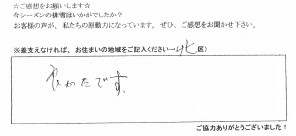 ☆ご感想をお願いします☆
今シーズンの排雪はいかがでしたか?
お客様の声が、私たちの原動力になっています。ぜひ、ご感想をお聞かせ下さい。
※差支えなければ、お住まいの地域をご記入ください→(北区)
よかったです。
ご協力ありがとうございました!